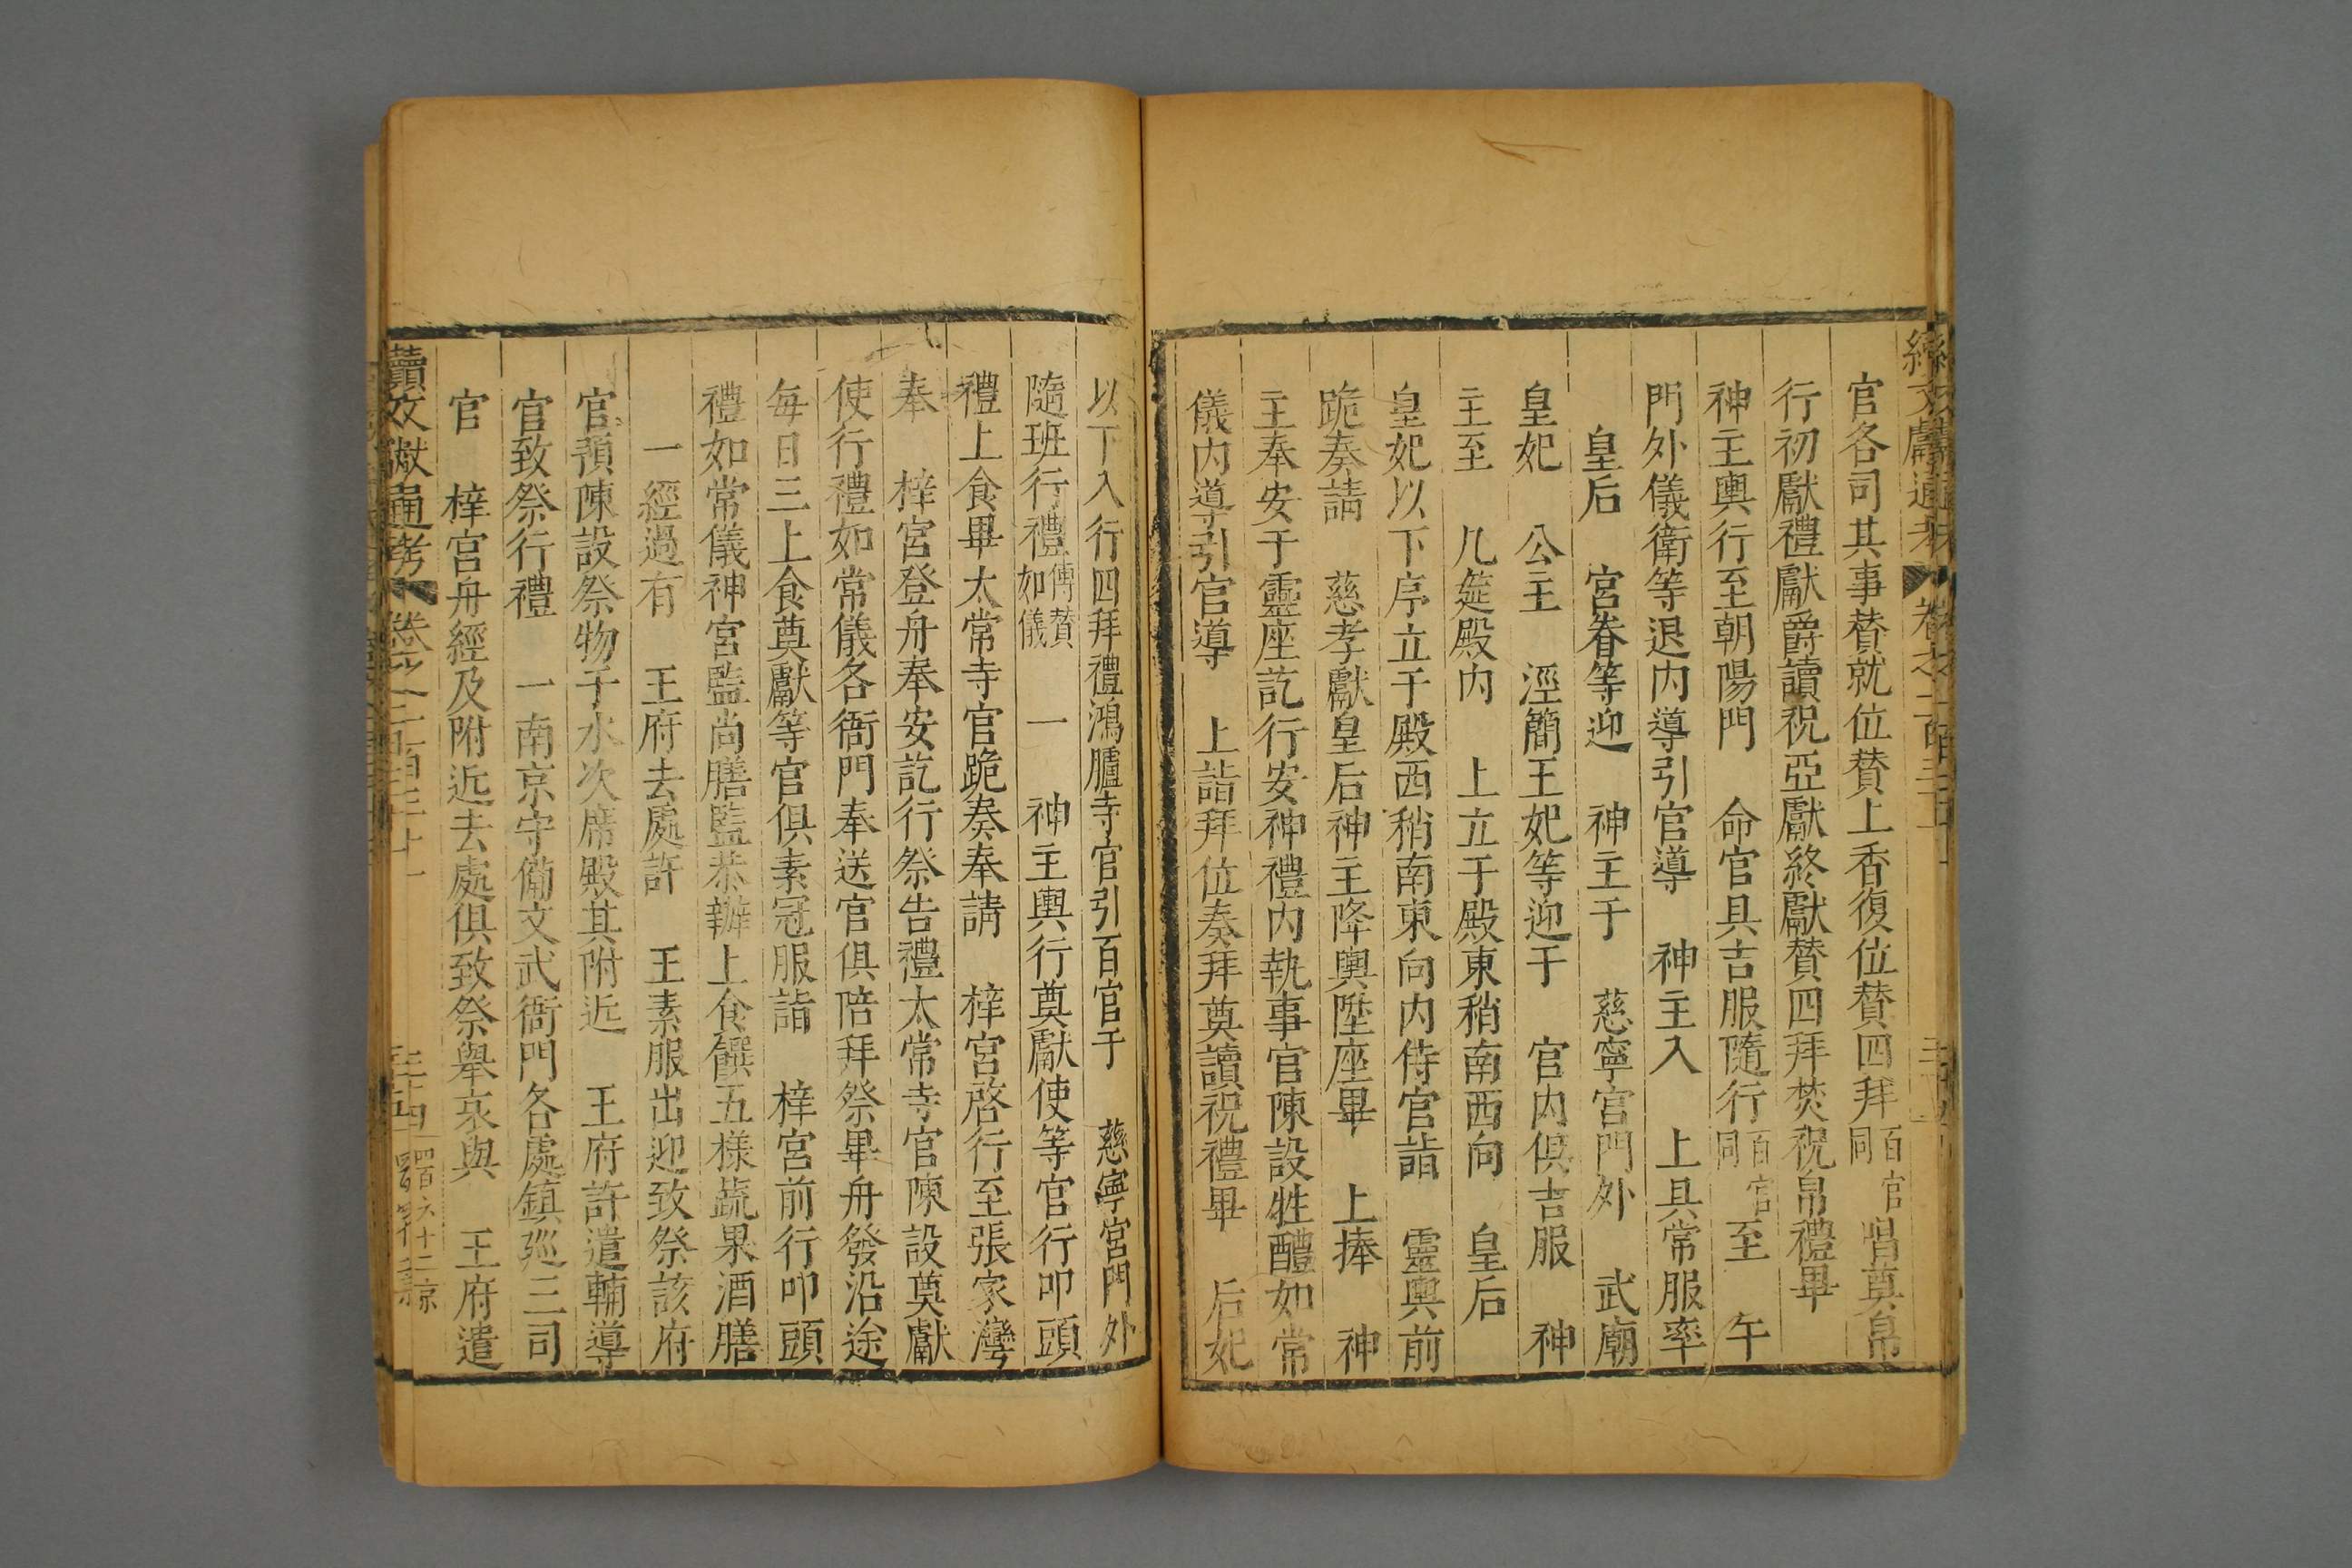 續文獻通考 卷之一百三十一
官各司其事贊就位贊上香復位贊四拜百官同唱奠帛
行初獻禮獻爵讀祝亞獻終獻贊四拜焚祝帛禮畢
神主輿行至朝陽門 命官具吉服隨行百官同至 午
門外儀衛等退內導引官導 神主入 上具常服率
皇后 宮眷等迎 神主于 慈寧宮門外 武廟
皇妃 公主 涇簡王妃等迎于 宮內俱吉服 神
主至 几筵殿內 上立于殿東稍南西向 皇后
皇妃以下序立于殿西稍南東向內侍官詣 靈輿前
跪奏請 慈孝獻皇后神主降輿陞座畢 上捧 神
主奉安于靈座訖行安神禮內執事官陳設牲醴如常
儀內導引官導 上詣拜位奏拜奠讀祝禮畢 后妃
以下入行四拜禮鴻臚寺官引百官于 慈寧宮門外
隨班行禮傳贊如儀 一 神主輿行奠獻使等官行叩頭
禮上食畢太常寺官跪奏奉請 梓宮啓行至張家灣
奉 梓宮登舟奉安訖行祭告禮太常寺官陳設奠獻
使行禮如常儀各衙門奉送官俱陪拜祭畢舟發沿途
每日三上食奠獻等官俱素冠服詣 梓宮前行叩頭
禮如常儀神宮監尚膳監恭辦上食饌五樣蔬果酒膳
一經過有 王府去處許 王素服出迎致祭該府
官預陳設祭物于水次席殿其附近 王府許遣輔導
官致祭行禮 一南京守備文武衙門各處鎮巡三司
官 梓宮舟經及附近去處俱致祭舉哀與 王府遣
續文獻通考 卷之一百三十一 三十四 四百六十二